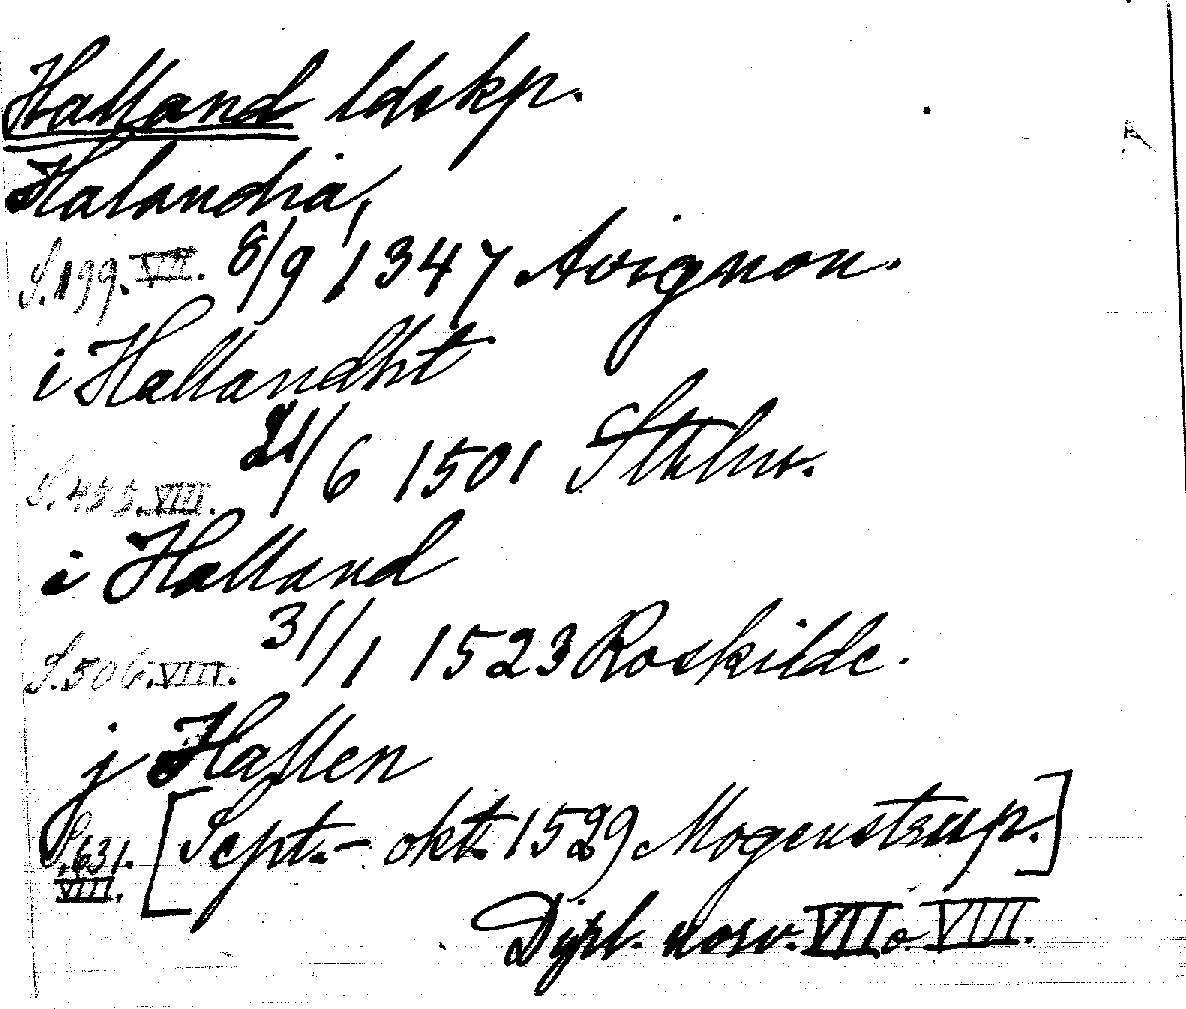 Halland ldskp.
Halandia,
S. 199. VII. 8/9 1347 Avignon.
i Hallandht
S. 455. VIII. 21/6 1501 Sthlm.
i Halland
S. 506. VIII. 31/1 1523 Roskilde.
j Hallen
S. 631. VIII. [Sept. - okt. 1529 Mogenstrup.]
Dipl. norv. VII o. VIII.